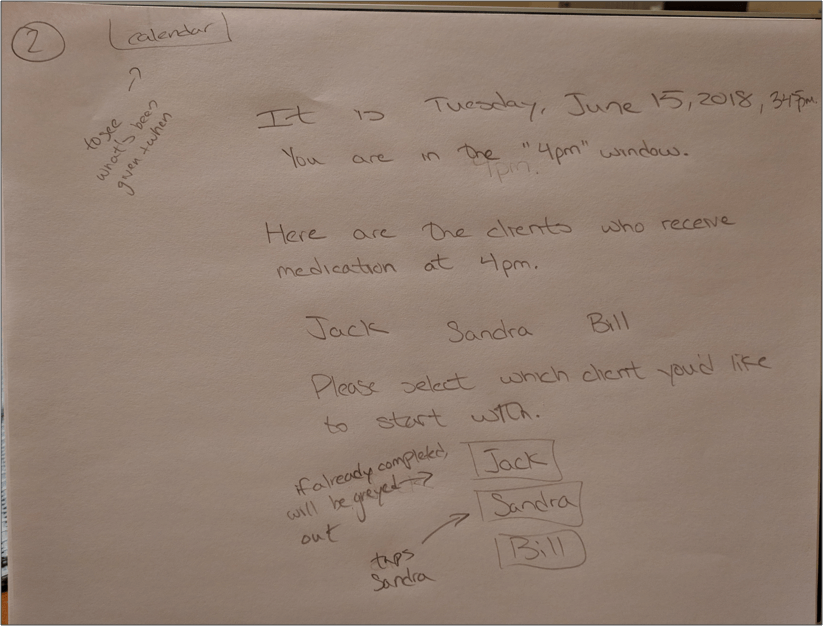 2
calendar
to see
what's been
given + when
It is Tuesday, June 15, 2018, 3:45pm.
You are in the "4pm" window.
4pm.
Here are the clients who receive
medication at 4pm.
Jack Sandra Bill
Please select which client you'd like
to start with.
if already completed,
will be greyed
out
Jack
Sandra
Bill
taps
Sandra